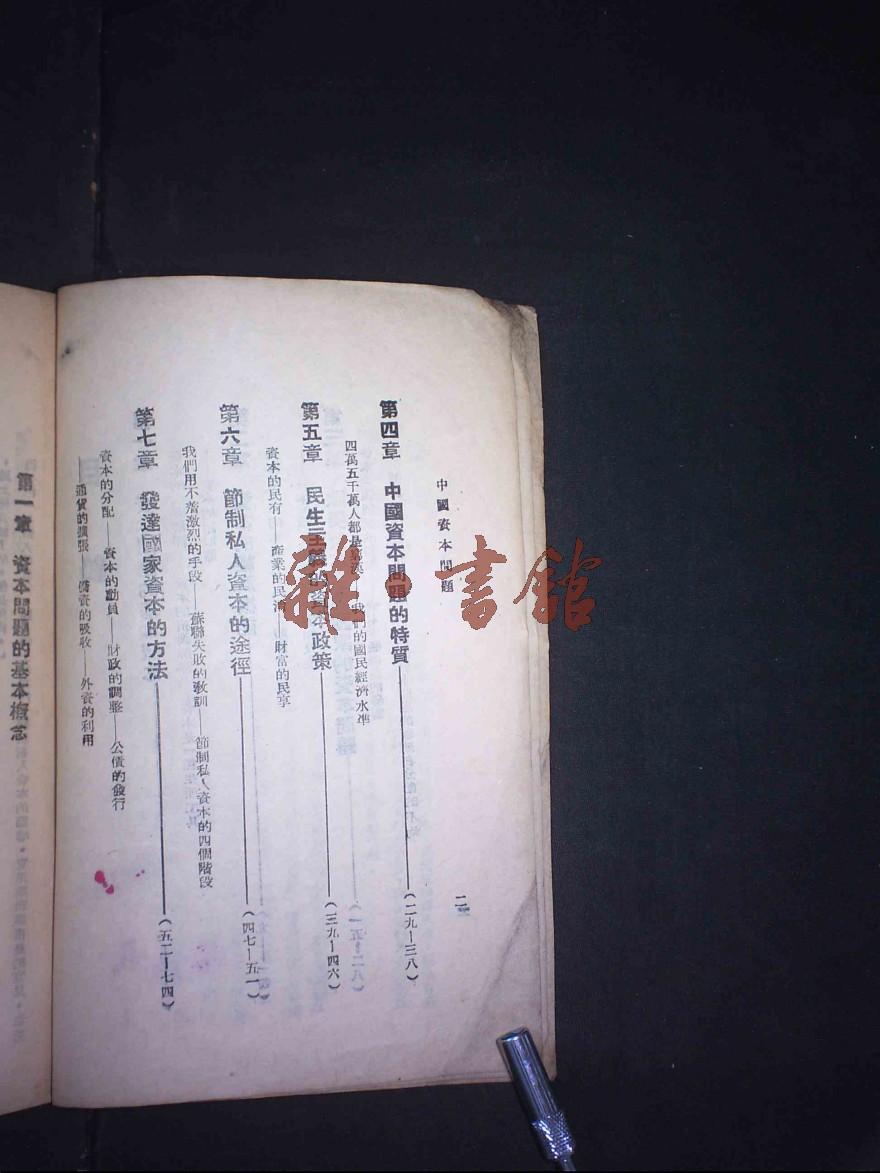 中國資本問題
二
第四章 中國資本問題的特質——(二九—三八)
四萬五千萬人都是 我們的國民經濟水準
第五章 民生主義的資本政策——(三九—四六)
資本的民有——產業的民 財富的民享
第六章 節制私人資本的途徑——(四七—五一)
我們用不着激烈的手段——蘇聯失敗的教訓——節制私人資本的四個階段
第七章 發達國家資本的方法——(五二—七四)
資本的分配——資本的動員——財政的調整——公債的發行
——通貨的擴張——儲資的吸收——外資的利用
第一章 資本問題的基本概念
雜·書館